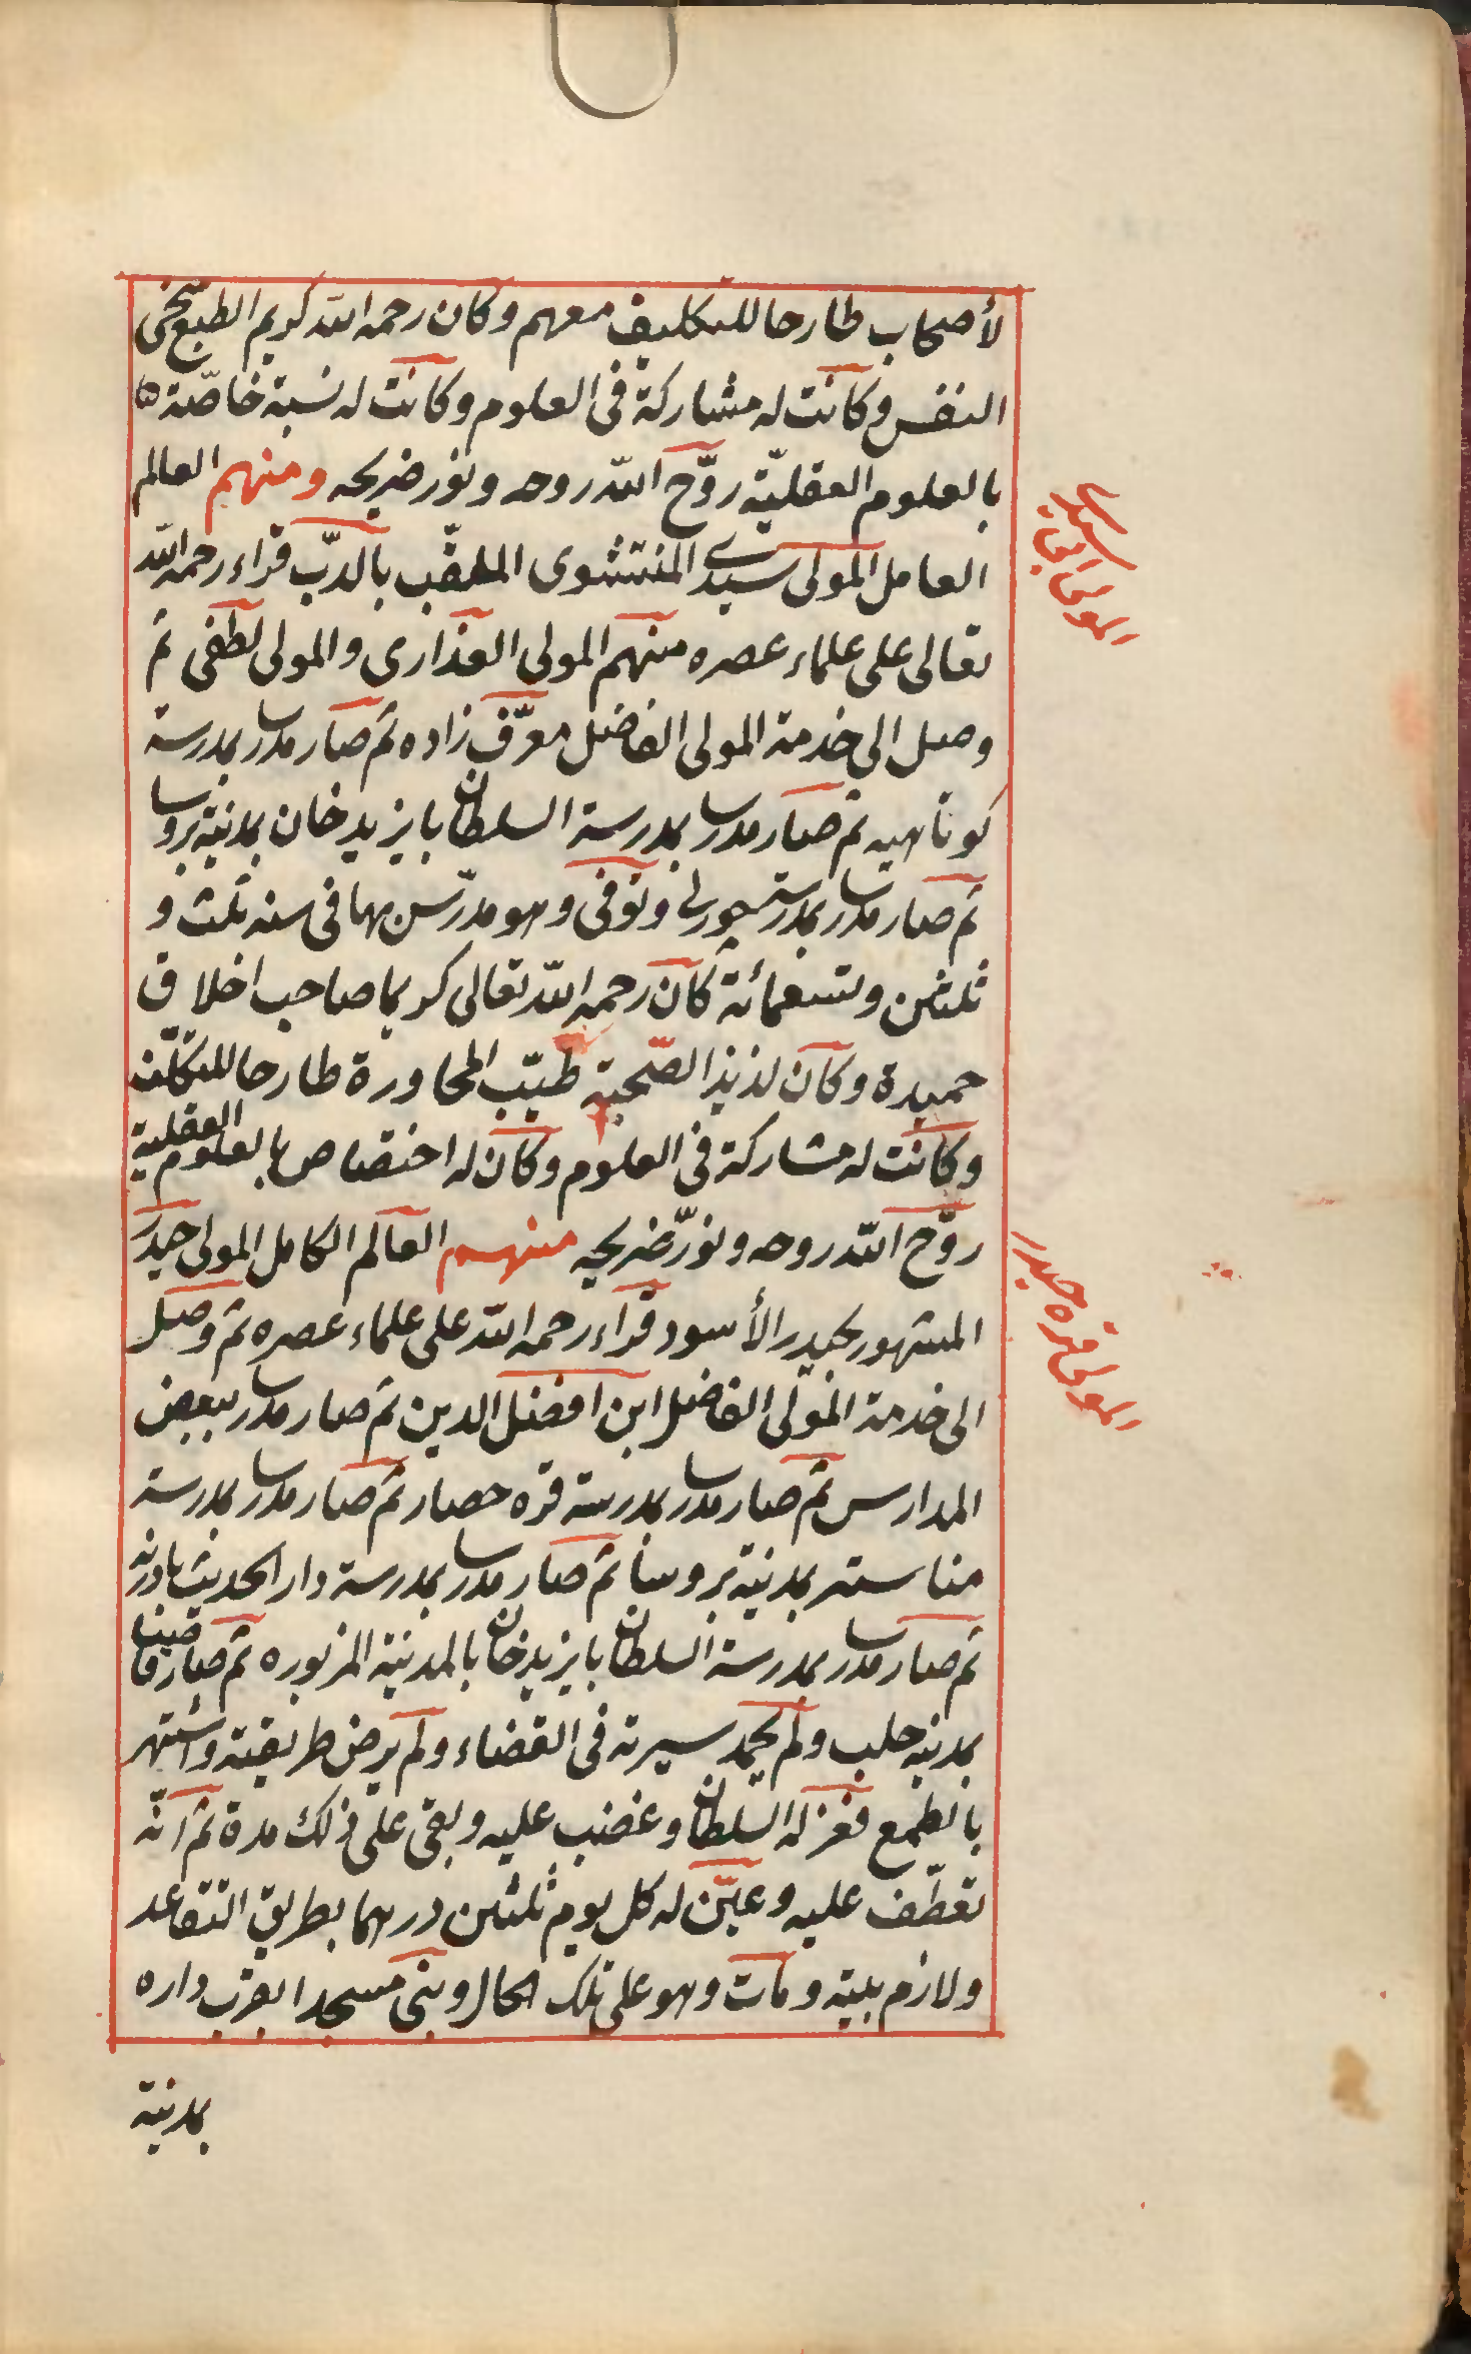 لأصحاب طارحا للتكليف معهم وكان رحمه الله كريم الطبع سخى
النفس وكانت له مشاركة فى العلوم وكانت له نسبة خاصّة
بالعلوم العقليّة روّح الله روحه ونور ضريحه ومنهم العالم
العامل المولى سيدى المنتشوى الملقّب بالدبّ قراء رحمه الله
تعالى على علماء عصره منهم المولى العذارى والمولى لطفى ثم
وصل الى خدمة المولى الفاضل معرّف زاده ثم صار مدرسا بمدرسة
كوتاهيه ثم صار مدرسا بمدرسة السلطان بايزيد خان بمدينة بروسا
ثم صار مدرسا بمدرسة چورلى وتوفى وهو مدرّس بها فى سنه ثلث و
ثلثين وتسعمائة كان رحمه الله تعالى كريما صاحب اخلاق
حميدة وكان لذيذ الصّحبة طيّب المحاورة طارحا للتكلّف
وكانت له مشاركة فى العلوم وكان له اختصاص بالعلوم العقلية
روّح الله روحه ونوّر ضريحه منهم العالم الكامل المولى حيدر
المشهور بحيدر الأسود قراء رحمه الله على علماء عصره ثم وصل
الى خدمة المولى الفاضل ابن افضل الدين ثم صار مدرسا ببعض
المدارس ثم صار مدرسا بمدرسة قره حصار ثم صار مدرسا بمدرسة
مناستر بمدينة بروسا ثم صار مدرسا بمدرسة دار الحديث بادرنه
ثم صار مدرسا بمدرسة السلطان بايزيد خان بالمدينة المزبوره ثم صار قاضيا
بمدينه حلب ولم يحمد سيرته فى القضاء ولم يرض طريقته واشتهر
بالطمع فعزله السلطان وغضب عليه وبقى على ذلك مدة ثم انّه
تعطّف عليه وعيّن له كل يوم ثلثين درهما بطريق التقاعد
ولازم بيته ومات وهو على تلك الحال وبنى مسجدا بقرب داره
بمدينة
المولى سيدى
المولى قره حيدر